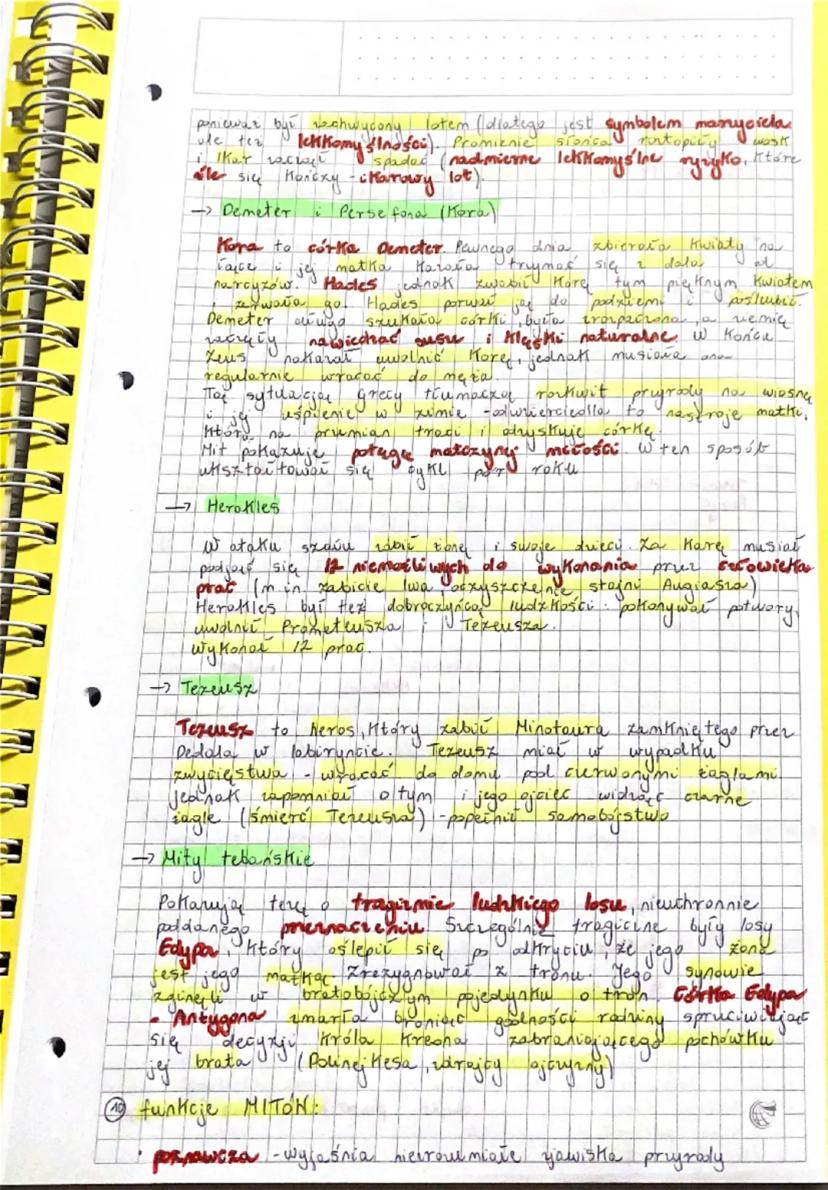 ponieważ był zachwycony lotem (dlatego jest symbolem marzyciela
ale też lekkomyślności). Promienie słońca roztopiły wosk
i Ikar zaczął spadać (nadmierne lekkomyślne ryzyko, które
źle się kończy - ikarowy lot).
→ Demeter i Persefona (Kora)
Kora to córka Demeter. Pewnego dnia zbierała kwiaty na
łące i jej matka kazała trzymać się z dala od
narcyzów. Hades jednak zwabił Korę tym pięknym kwiatem
i zerwała go. Hades porwał ją do podziemi i poślubił.
Demeter długo szukała córki, była zrozpaczona, a ziemię
zaczęły nawiedzać susze i klęski naturalne. W końcu
Zeus nakazał uwolnić Korę, jednak musiała ona
regularnie wracać do męża.
Tą sytuacją Grecy tłumaczą rozkwit przyrody na wiosnę
i jej uśpienie w zimie - odzwierciedla to nastroje matki,
która na przemian traci i odzyskuje córkę.
Mit pokazuje potęgę matczynej miłości. W ten sposób
ukształtował się cykl pór roku
→ Herakles
W ataku szału zabił żonę i swoje dzieci. Za karę musiał
podjąć się 12 niemożliwych do wykonania przez człowieka
prac (m.in. zabicie lwa, oczyszczenie stajni Augiasza)
Herakles był też dobroczyńcą ludzkości: pokonywał potwory,
uwolnił Prometeusza i Tezeusza.
Wykonał 12 prac.
→ Tezeusz
Tezeusz to heros, który zabił Minotaura zamkniętego przez
Dedala w labiryncie. Tezeusz miał w wypadku
zwycięstwa - wracać do domu pod czerwonymi żaglami
jednak zapomniał o tym i jego ojciec widząc czarne
żagle (śmierć Tezeusza) - popełnił samobójstwo
→ Mity tebańskie
Pokazują tezę o tragizmie ludzkiego losu, nieuchronnie
poddanego przeznaczeniu. Szczególnie tragiczne były losy
Edypa, który oślepił się po odkryciu, że jego żona
jest jego matką. Zrezygnował z tronu. Jego synowie
zginęli w bratobójczym pojedynku o tron. Córka Edypa
- Antygona zmarła broniąc godności rodziny spruciwiając
się decyzji króla Kreona zabraniającego pochówku
jej brata (Polinejkesa, zdrajcy ojczyzny)
10 funkcje MITÓW:
• poznawcza - wyjaśnia niezrozumiałe zjawiska przyrody